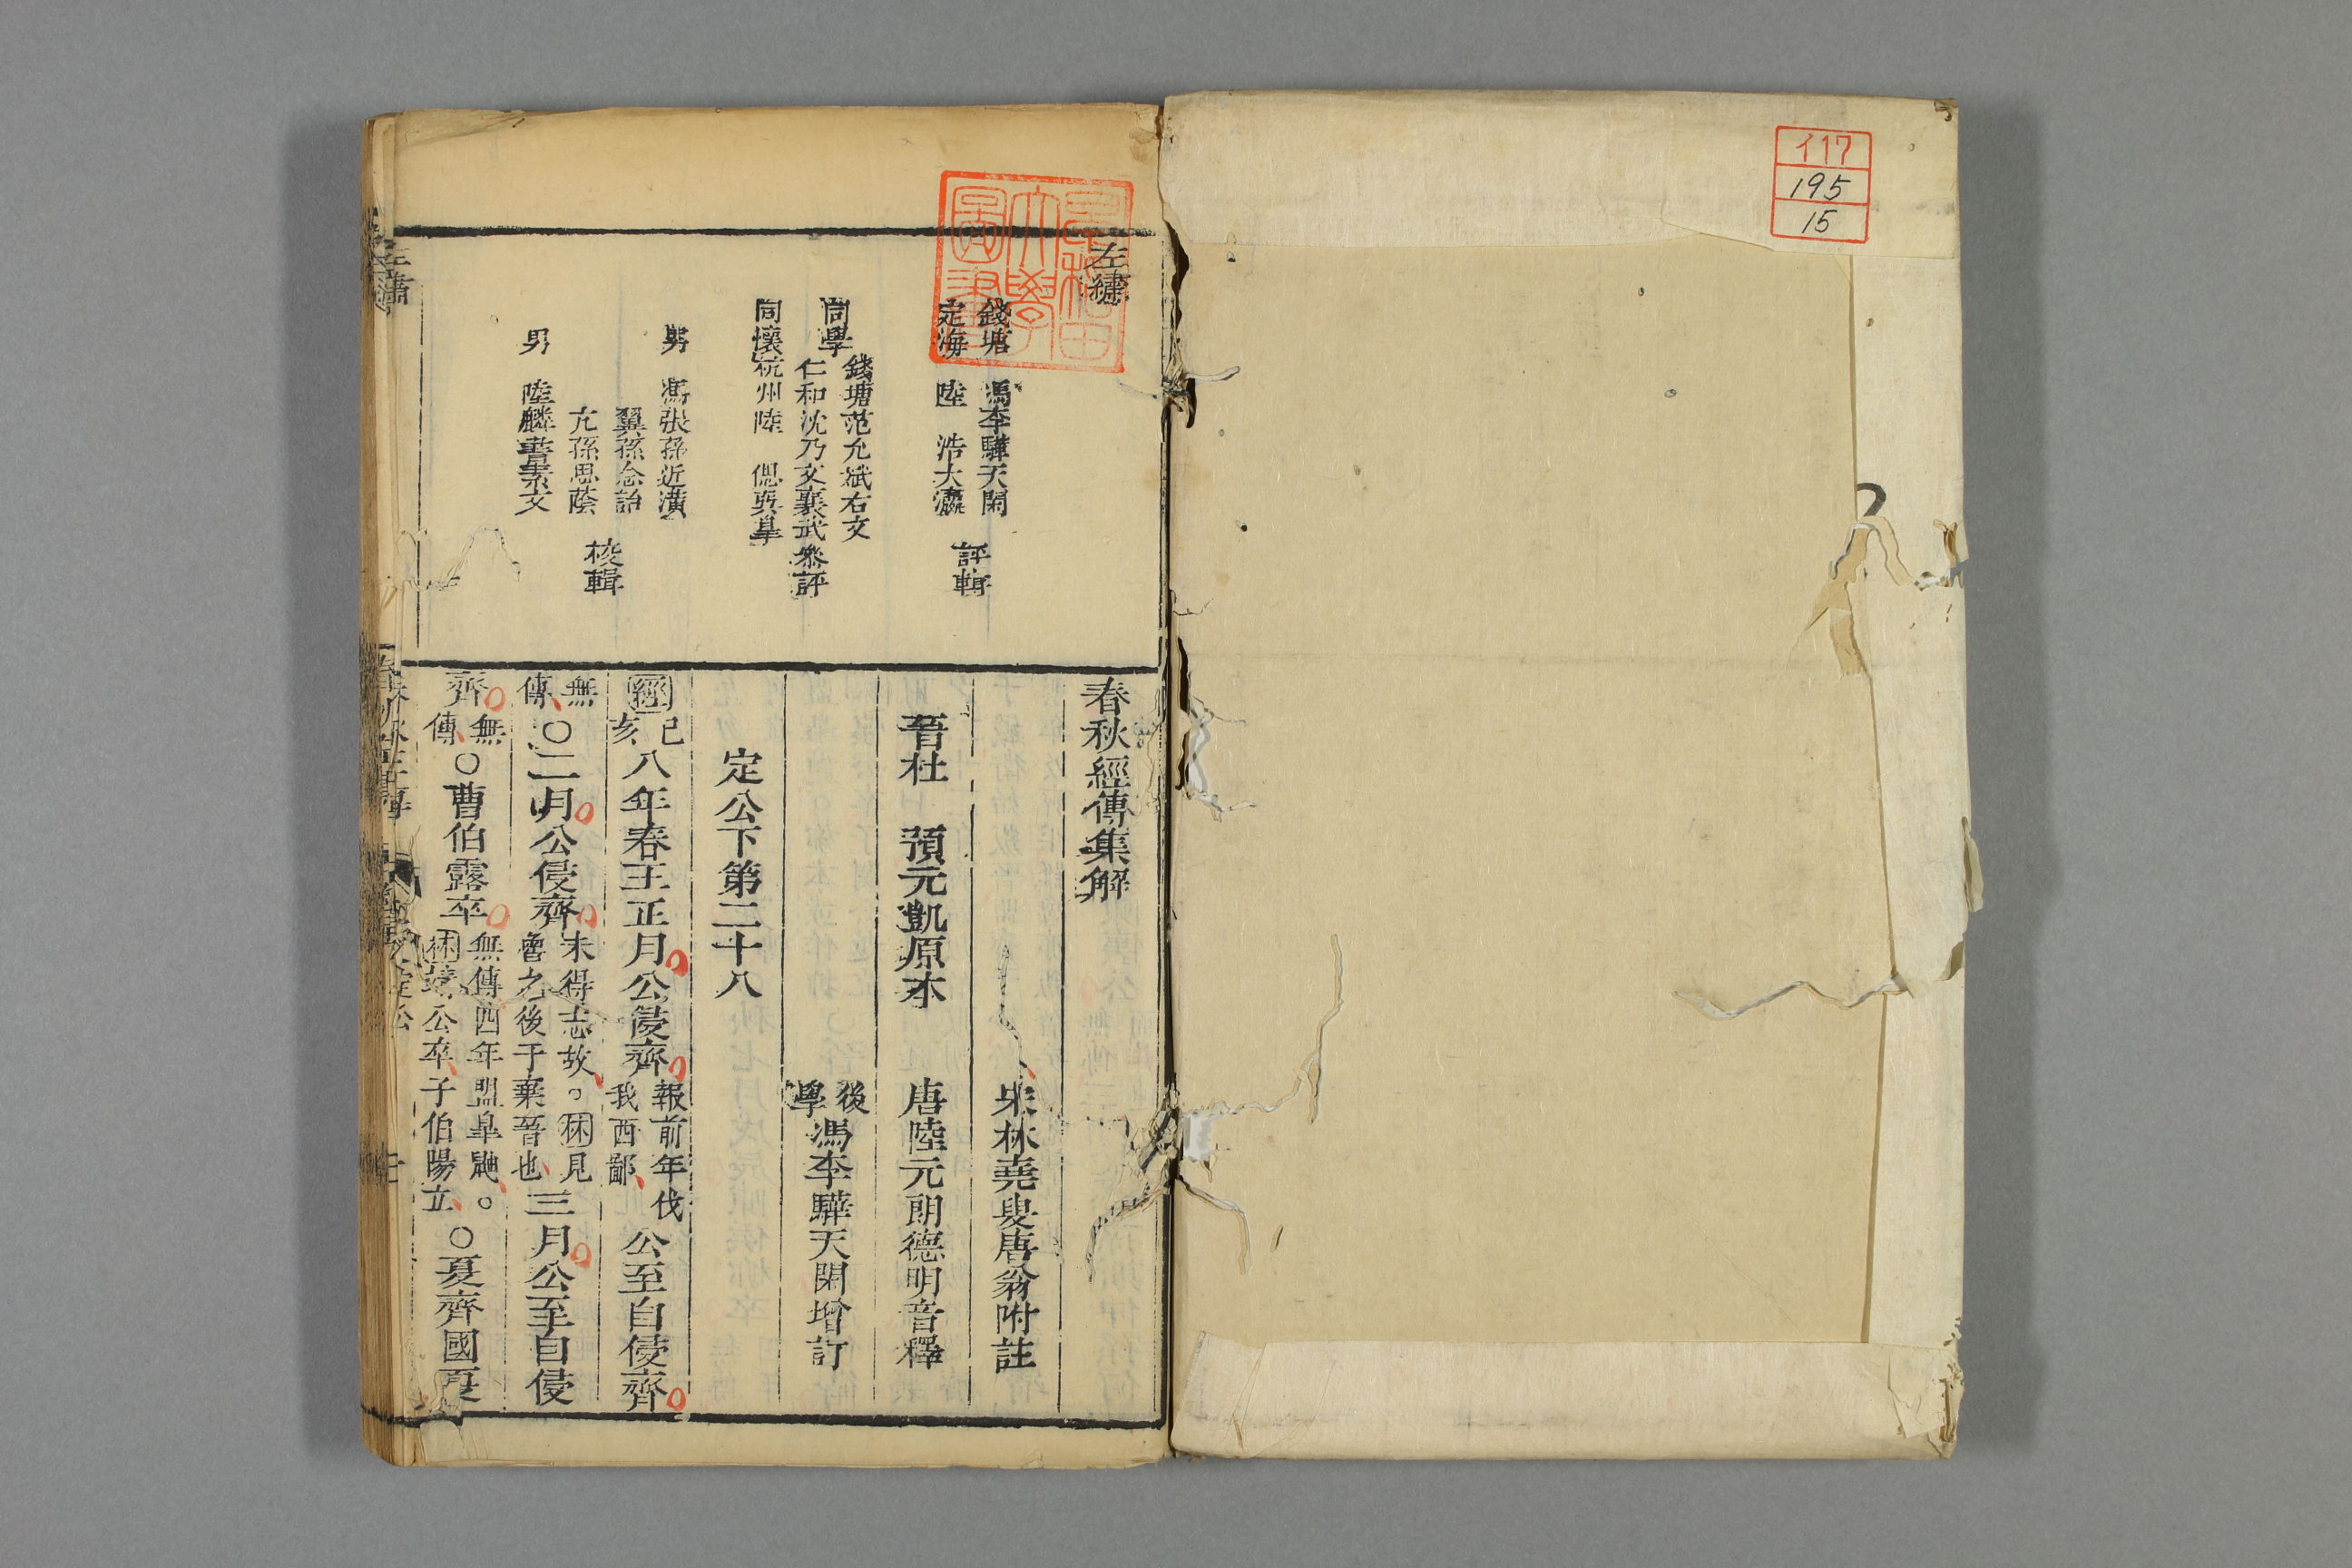 イ17
195
15
早稲田大學圖書
左繡
錢塘 馮李驊天閑
定海 陸浩大瀛
評輯
同學
錢塘范允斌右文
仁和沈乃文襄武
參評
同懷杭州陸偲
男 馮張孫近潢
翼孫念詒
允孫思蔭
男 陸麟書素文
校輯
春秋經傳集解
宋林堯叟唐翁附註
晉杜 預元凱原本 唐陸元朗德明音釋
後學馮李驊天閑增訂
定公下第二十八
經己亥八年春王正月公侵齊報前年伐我西鄙公至自侵齊
無傳○二月公侵齊未得志故。林見魯之後于棄晉也三月公至自侵
齊無傳○曹伯露卒無傳四年盟皐鼬。林靖公卒子伯陽立○夏齊國夏
左繡
定公